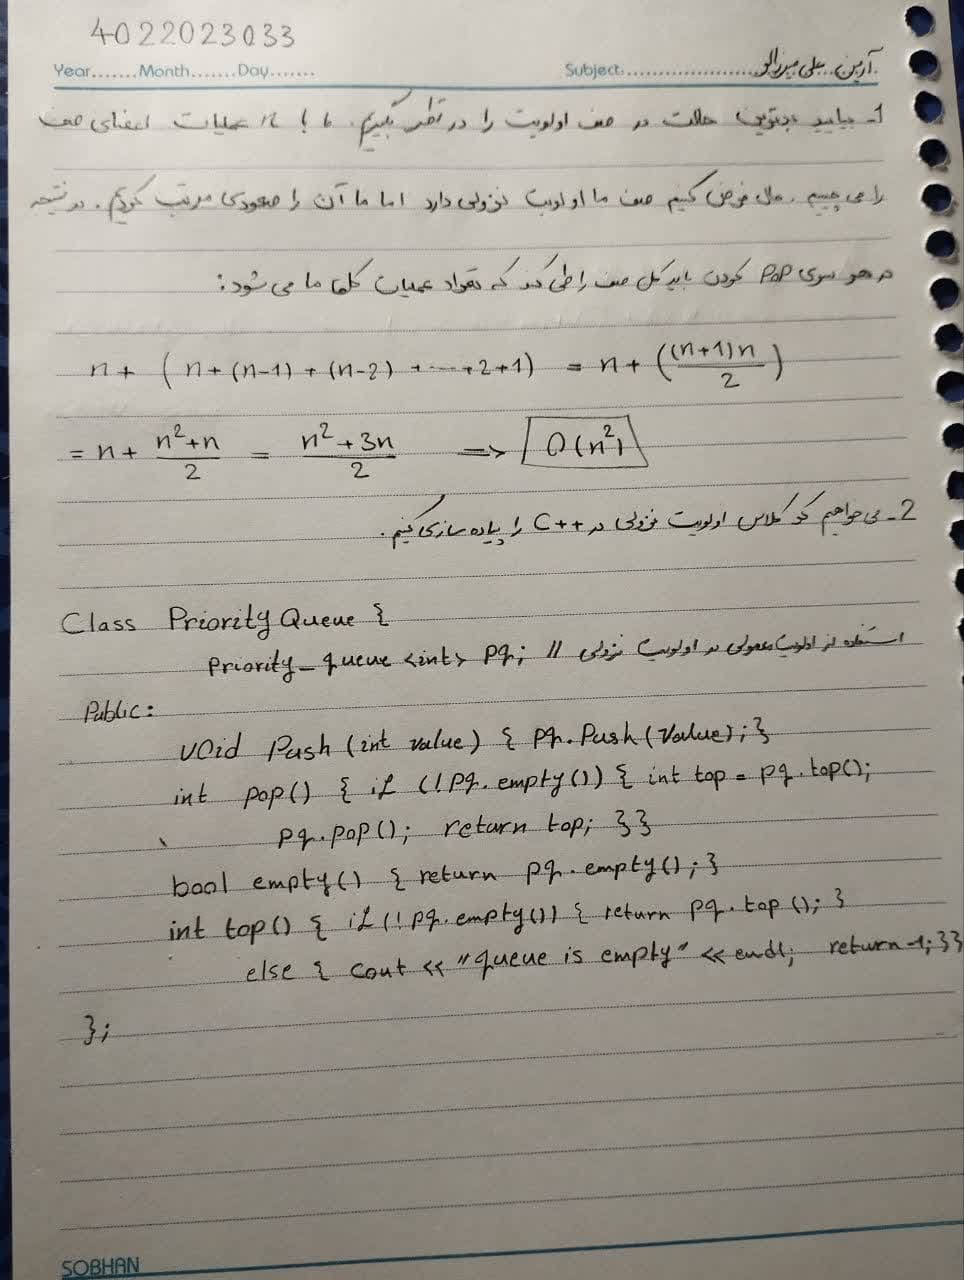 4022023033
Year.......Month.......Day.......
Subject....................آرمین علی میرزالو
1- بیایید بدترین حالت در صف اولویت را در نظر بگیریم. ما با n عملیات اعضای صف
را می چینیم. حال فرض کنیم صف ما اولویت نزولی دارد اما ما آن را صعودی مرتب کردیم. در نتیجه
در هر سری pop کردن باید کل صف را طی کند که تعداد عملیات کلما ما می شود:
n + (n + (n-1) + (n-2) + ... + 2 + 1) = n + ((n+1)n/2)
= n + n²+n/2 = n²+3n/2 ⟶ O(n²)
2- می خواهیم کد کلاس اولویت نزولی در C++ را پیاده سازی کنیم.
Class Priority Queue {
Priority_queue <int> pq; // استفاده از اولویت معمولی در اولویت نزولی
Public:
void Push (int value) { pq.Push(value); }
int pop() { if (!pq.empty()) { int top = pq.top();
pq.pop(); return top; }}
bool empty() { return pq.empty(); }
int top() { if (!pq.empty()) { return pq.top(); }
else { cout << "queue is empty" << endl; return -1; }}
};
SOBHAN